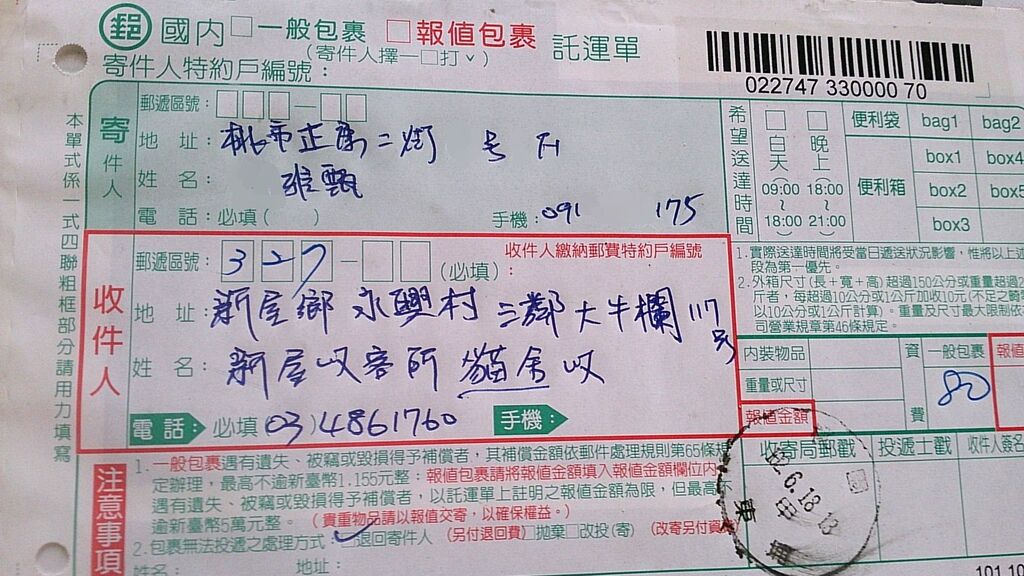 郵 國內□一般包裹 □報值包裹 託運單
(寄件人擇一□打ˇ)
寄件人特約戶編號:
022747 330000 70
本單式係一式四聯粗框部分請用力填寫
寄件人
郵遞區號: □□□—□□
地 址: 桃市正康二街 号
姓 名: 張甄
電 話:必填( ) 手機:091 175
希望送達時間
□白天 09:00~18:00
□晚上 18:00~21:00
便利袋 bag1 bag2
便利箱 box1 box4
box2 box5
box3
收件人
收件人繳納郵費特約戶編號:
郵遞區號: 327—□□(必填)
地 址: 新屋鄉永興村三鄰大牛欄117号
姓 名: 新屋收容所 貓舍 收
電話: 必填(03)4861760 手機:
1.實際送達時間將受當日遞送狀況影響,惟將以上述
段為第一優先。
2.外箱尺寸(長+寬+高)超過150公分或重量超過2
斤者,每超過10公分或1公斤加收10元(不足之畸
以10公分或1公斤計算)。重量及尺寸最大限制依
司營業規章第46條規定。
內裝物品
重量或尺寸
報值金額
資費
一般包裹 報值
80
收寄局郵戳 投遞士戳 收件人簽名
02.6.18 13
注意事項
1.一般包裹遇有遺失、被竊或毀損得予補償者,其補償金額依郵件處理規則第65條規
定辦理,最高不逾新臺幣1,155元整;報值包裹請將報值金額填入報值金額欄位內
遇有遺失、被竊或毀損得予補償者,以託運單上註明之報值金額為限,但最高不
逾新臺幣5萬元整。(貴重物品請以報值交寄,以確保權益。)
2.包裹無法投遞之處理方式:☑退回寄件人 (另付退回費)□拋棄□改投(寄) (改寄另付資費)
姓名: 地址:
101.10